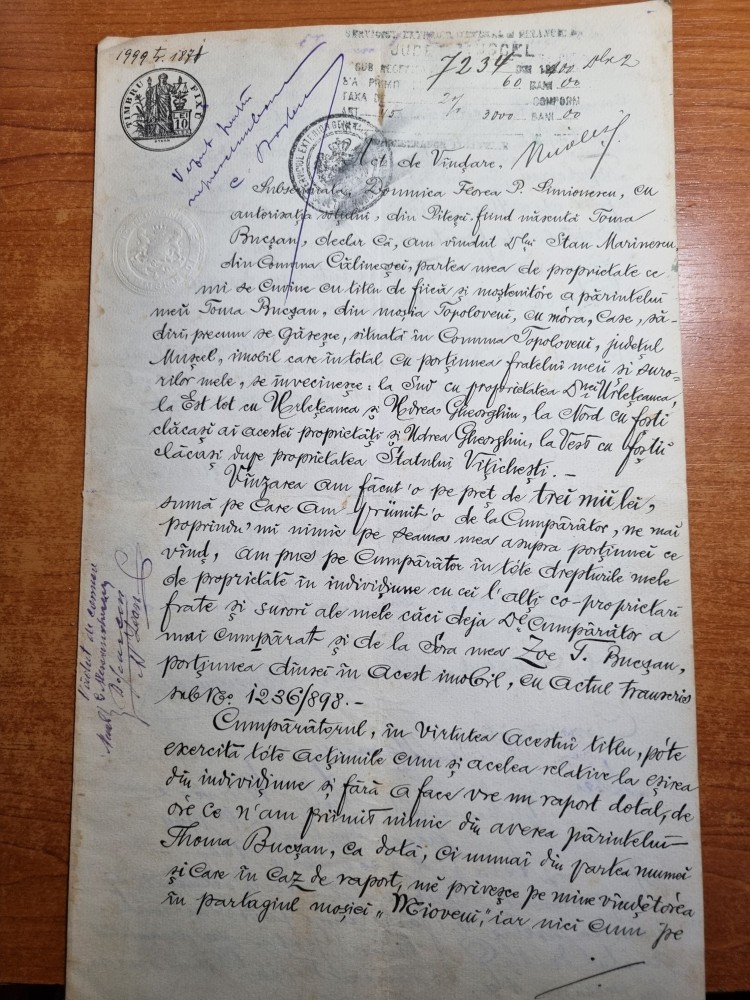 TIMBRU FIX
10
JUD MUSCEL
7234
60 BANI 00
TAXA
CONFORM
3000 BANI 00
Act de Vîndare.
Subsemnata, Domnica Florea P. Simionescu, cu
autorisația soțului, din Pitești, fiind născută Toma
Bucșan, declar că, am vîndut Dlui Stan Marinescu
din Comuna Călinești, partea mea de proprietate ce
mi se cuvine cu titlu de fiică și moștenitóre a părintelui
meŭ Toma Bucșan, din moșia Topoloveni, cu móra, case, să-
diri, precum se găsesce, situată în Comuna Topoloveni, județul
Mușcel, imobil care în total cu porțiunea fratelui meŭ și suro-
rilor mele, se învecinesce: la Sud cu proprietatea Dnei Urlețeanca,
la Est tot cu Urlețeanca și Udrea Gheorghiu, la Nord cu foști
clăcași ai acestei proprietăți și Udrea Gheorghiu, la Vest cu foștii
clăcași dupe proprietatea Statului Vițichești. -
Vînzarea am făcut'o pe preț de trei mii lei,
sumă pe care am primit'o de la cumpărător, ne mai
poprindu'mi nimic pe seama mea asupra porțiunei ce
vînd, am pus pe cumpărător în tóte drepturile mele
de proprietate în individiune cu cei l'alți co-proprietari
frate și surori ale mele căci deja Dl Cumpărător a
mai cumpărat și de la Sora mea Zoe T. Bucșan,
porțiunea dînsei în acest imobil, cu actul transcris
sub No 1236/898. -
Cumpărătorul, în virtutea acestui titlu, póte
exercita tóte acțiunile cum și acelea relative la eșirea
din individiune și fără a face vre un raport dotal, de
óre ce n'am primit nimic din averea părintelui
Thoma Bucșan, ca dotă, ci numai din partea mumei
și care în caz de raport, mĕ privesce pe mine vîndĕtórea
în partagiul moșiei „Mioveni," iar nici cum pe